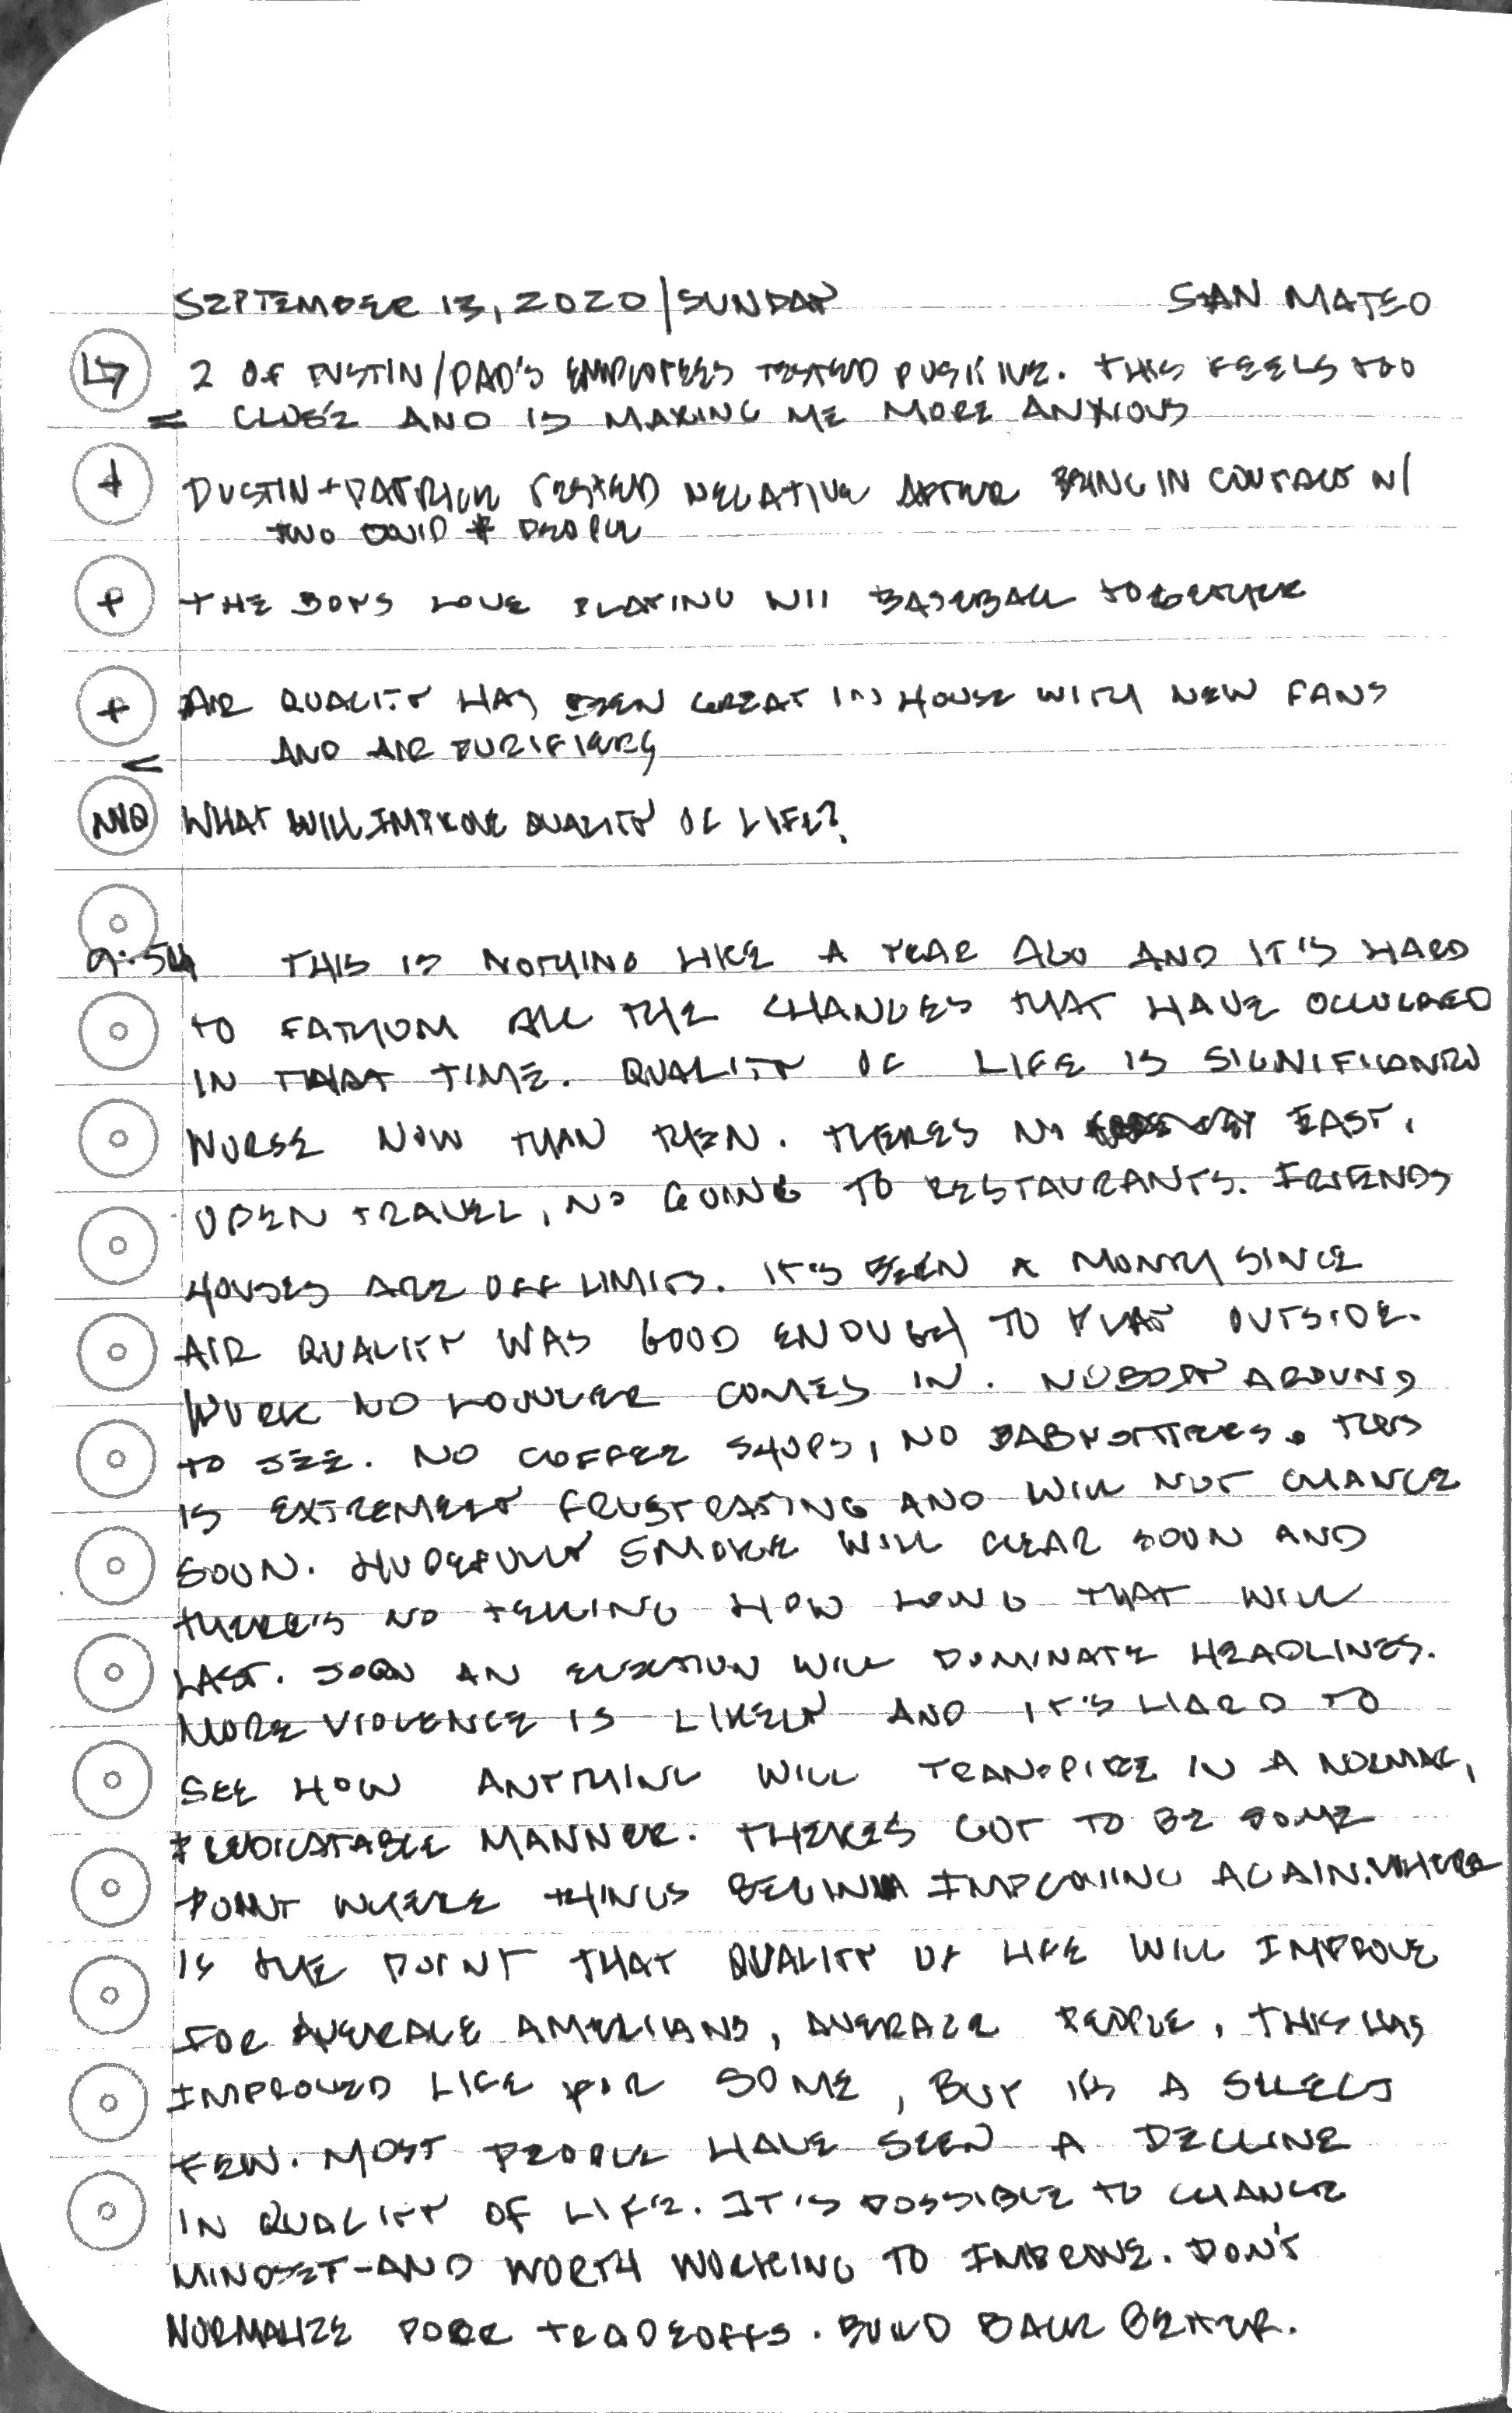 SEPTEMBER 13, 2020 | SUNDAY SAN MATEO
2 OF DUSTIN/DAD'S EMPLOYEES TESTED POSITIVE. THIS FEELS TOO
= CLOSE AND IS MAKING ME MORE ANXIOUS
+ DUSTIN + PATRICK TESTED NEGATIVE AFTER BEING IN CONTACT W/
TWO COVID + PEOPLE
+ THE BOYS LOVE PLAYING WII BASEBALL TOGETHER
+ AIR QUALITY HAS BEEN GREAT IN HOUSE WITH NEW FANS
< AND AIR PURIFIERS
WHAT WILL IMPROVE QUALITY OF LIFE?
9:54 THIS IS NOTHING LIKE A YEAR AGO AND IT'S HARD
TO FATHOM ALL THE CHANGES THAT HAVE OCCURRED
IN THAT TIME. QUALITY OF LIFE IS SIGNIFICANTLY
WORSE NOW THAN THEN. THERES NO EASY,
OPEN TRAVEL, NO GOING TO RESTAURANTS. FRIENDS
HOUSES ARE OFF LIMITS. IT'S BEEN A MONTH SINCE
AIR QUALITY WAS GOOD ENOUGH TO PLAY OUTSIDE.
WORK NO LONGER COMES IN. NOBODY AROUND
TO SEE. NO COFFEE SHOPS, NO BABYSITTERS. THIS
IS EXTREMELY FRUSTRATING AND WILL NOT CHANGE
SOON. HOPEFULLY SMOKE WILL CLEAR SOON AND
THERE'S NO TELLING HOW LONG THAT WILL
LAST. SOON AN ELECTION WILL DOMINATE HEADLINES.
MORE VIOLENCE IS LIKELY AND IT'S HARD TO
SEE HOW ANYTHING WILL TRANSPIRE IN A NORMAL,
PREDICATABLE MANNER. THERES GOT TO BE SOME
POINT WHERE THINGS BEGIN IMPROVING AGAIN. WHERE
IS THE POINT THAT QUALITY OF LIFE WILL IMPROVE
FOR AVERAGE AMERICANS, AVERAGE PEOPLE, THIS HAS
IMPROVED LIFE FOR SOME, BUT ITS A SELECT
FEW. MOST PEOPLE HAVE SEEN A DECLINE
IN QUALITY OF LIFE. IT'S POSSIBLE TO CHANGE
MINDSET-AND WORTH WORKING TO IMPROVE. DON'T
NORMALIZE POOR TRADEOFFS. BUILD BACK BETTER.